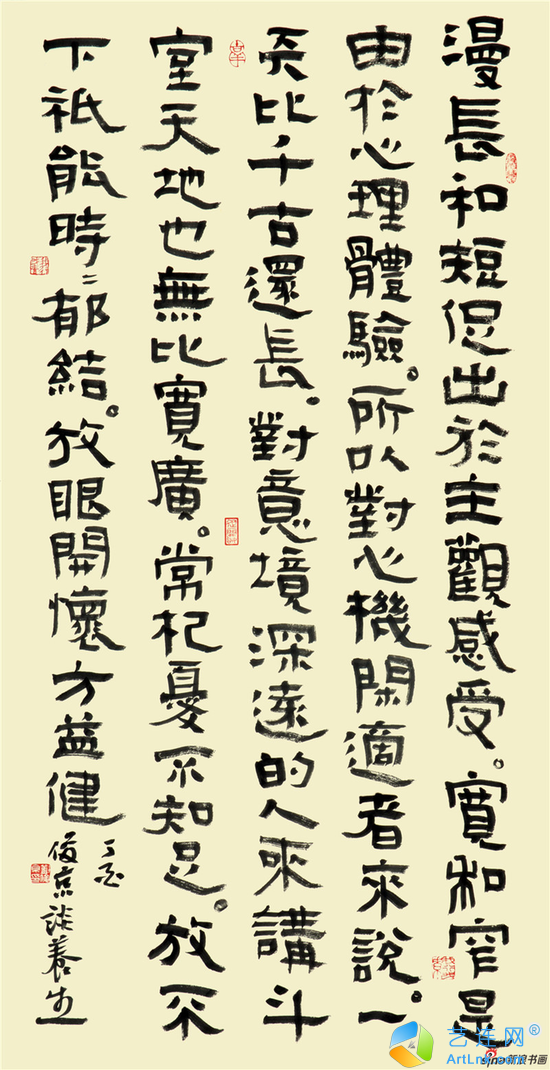 漫長和短促出於主觀感受。寬和窄是
由於心理體驗。所以對心機閑適者來說。一
天比千古還長。對意境深遠的人來講斗
室天地也無比寬廣。常杞憂不知足。放不
下祇能時〻郁結。放眼開懷方益健
丁酉
俊京談養生
艺连网®
sina新浪书画